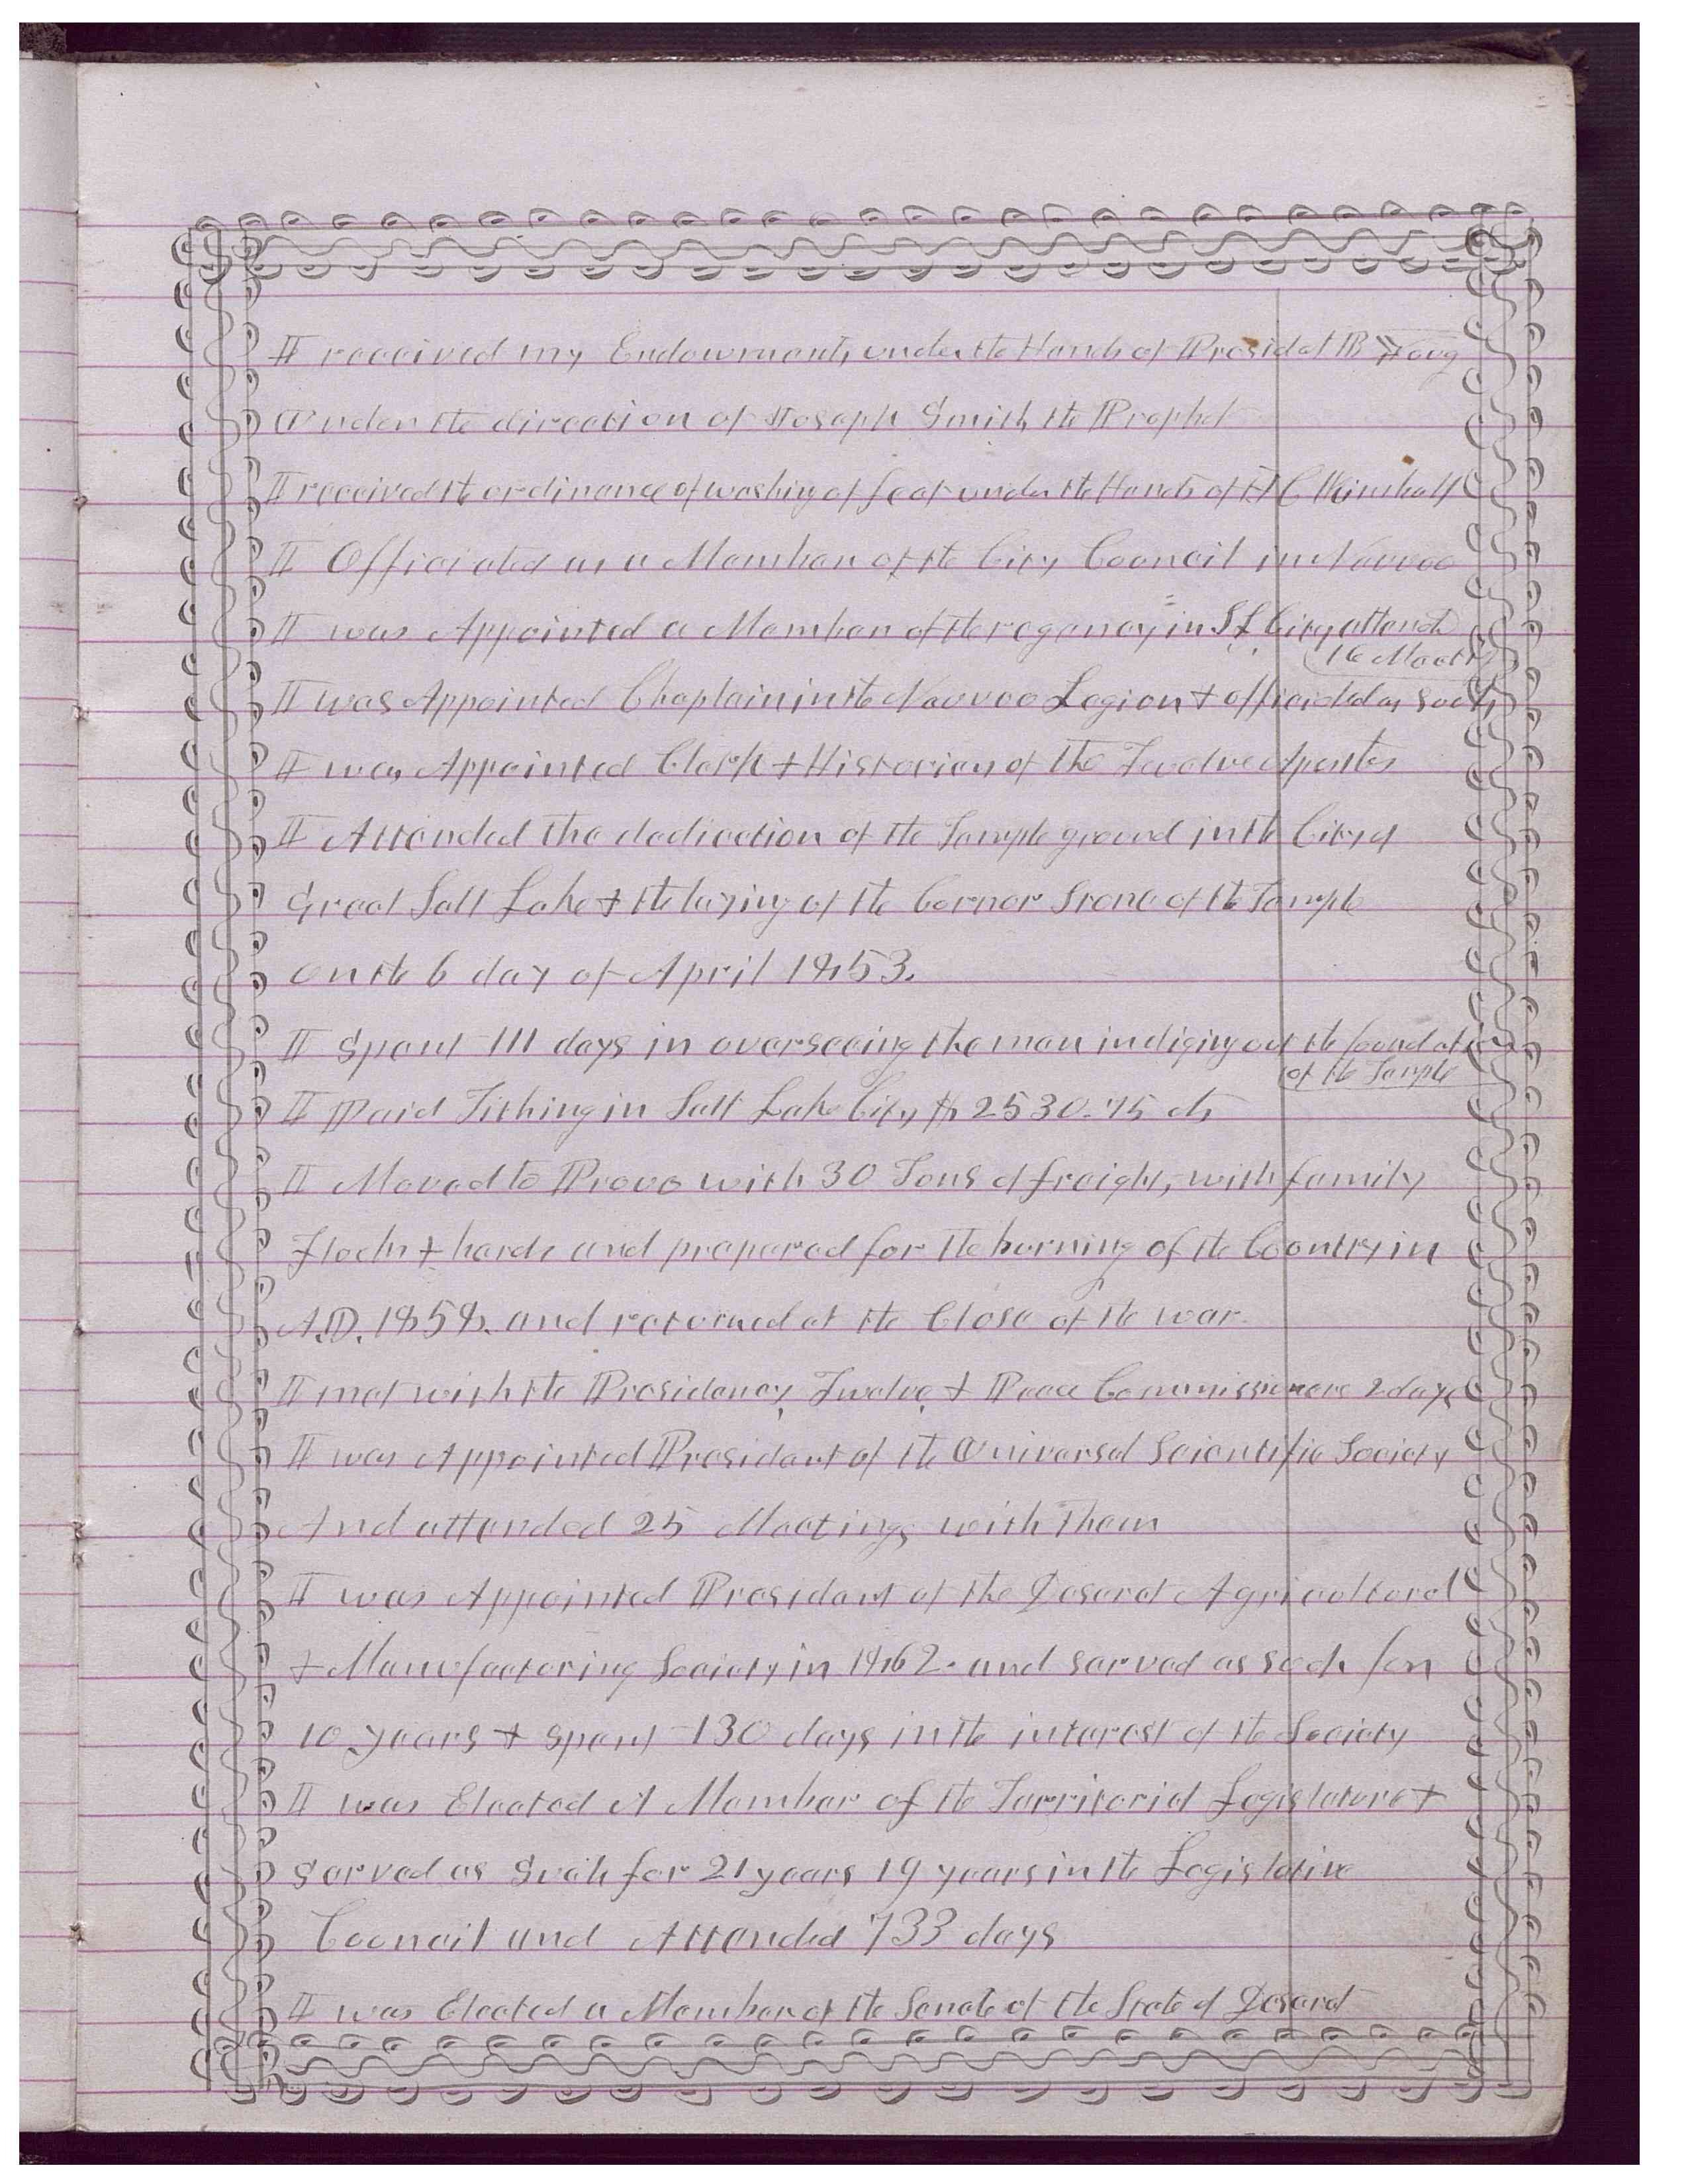 I received my Endowments under the Hands of Presidet B Youg
Under the direction of Joseph Smith the Prophet
I received the ordinance of washing of feet under the Hands of H C Kimball
I Officiated as a Member of the City Council in Nauvoo
I was Appointed a Member of the regency in S L City attend
16 Meet
I was Appointed Chaplain in the Nauvoo Legion + officiated as such
I was Appointed Clerk + Historian of the Twelve Apostles
I Attended the dedication of the Temple ground in the City of
Great Salt Lake + the laying of the Corner Stone of the Temple
on the 6 day of April 1853.
I Spent 111 days in overseeing the men in diging out the foundation
of the Temple
I Paid Tithing in Salt Lake City $ 2530.75 cts
I Moved to Provo with 30 Tons of freight, with family
flocks + herds and prepared for the burning of the Country in
A.D. 1858. and returned at the Close of the war.
I met with the Presidency, Twelve, + Peace Commissioners 2 days
I was Appointed President of the Universal Scientific Society
And attended 25 Meetings with Them
I was Appointed President of the Deseret Agricultural
+ Manufacturing Society in 1862. and served as such for
10 years + spent 130 days in the interest of the Society
I was Elected A Member of the Territorial Legislature +
Served as Such for 21 years 19 years in the Legislative
Council and Attended 733 days
I was Elected a Member of the Senate of the State of Deseret